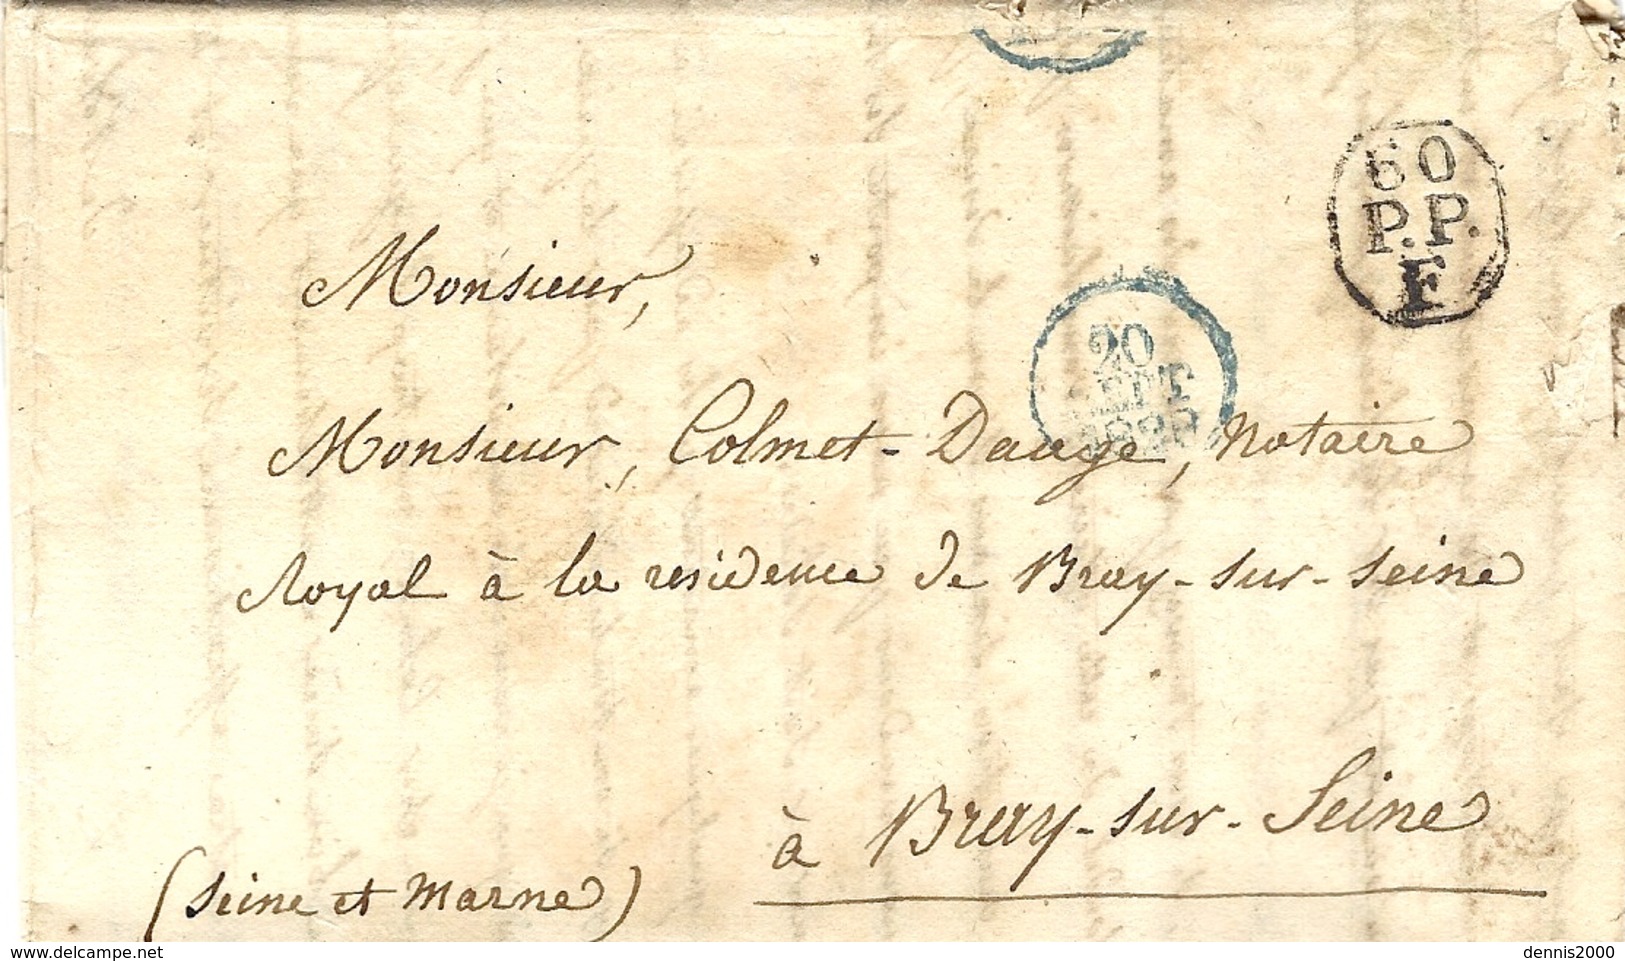 60
P.P.
F
Monsieur,
20
SEPT
Monsieur, Colmet-Dauge, Notaire
Royal à la residence de Bray-sur-Seine
à Bray-sur-Seine
(Seine et Marne)
delcampe.net
dennis2000